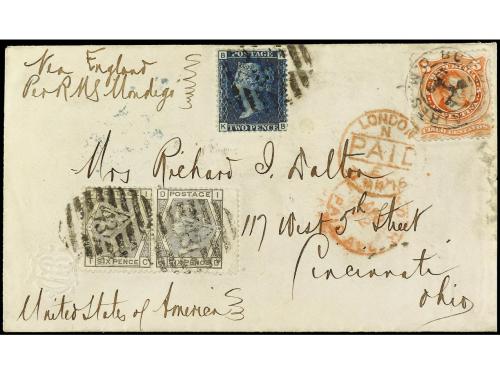 Via England
Per RMS Mondego
POSTAGE
TWO PENCE
K B
Mrs Richard I. Dalton
117 West 5th Street
Cincinnati
Ohio
United States of America
LONDON
N
PAID
POSTAGE
SIX PENCE
SIX PENCE